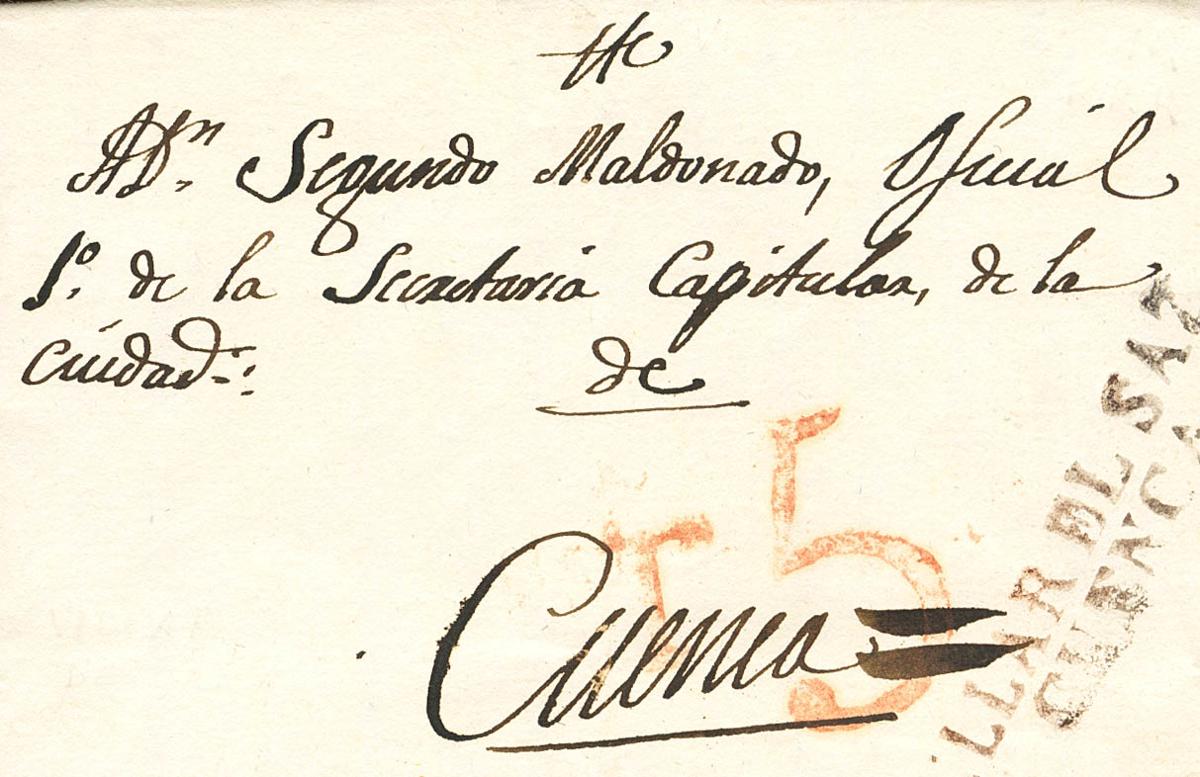 A D.n Segundo Maldonado, Oficial
1º. de la Secretaria Capitular, de la
Ciudad.:
de
Cuenca =
15
LLAR EL SAZ
CUENCA